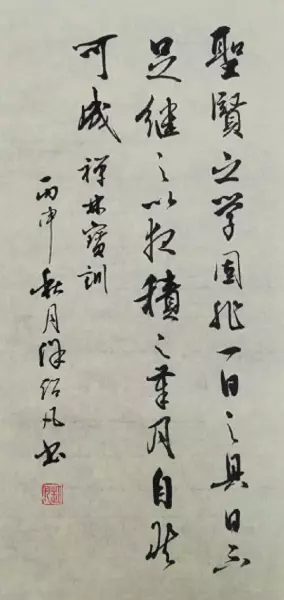 聖賢之学固非一日之具日不
足继之以夜積之年月自然
可成
禅林寶訓
丙申秋月 绍凡书